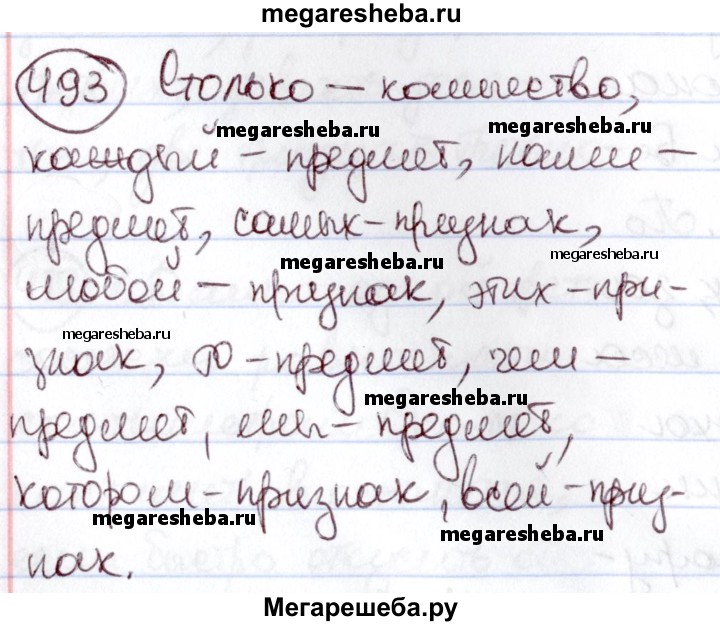 megaresheba.ru
493 Столько – количество,
megaresheba.ru megaresheba.ru
каждый – предмет, нами –
предмет, самых – признак,
megaresheba.ru megaresheba.ru
любой – признак, этих – при-
megaresheba.ru
знак, то – предмет, чем –
megaresheba.ru
предмет, мы – предмет,
котором – признак, всей – приз-
megaresheba.ru megaresheba.ru
нак.
Мегарешеба.ру